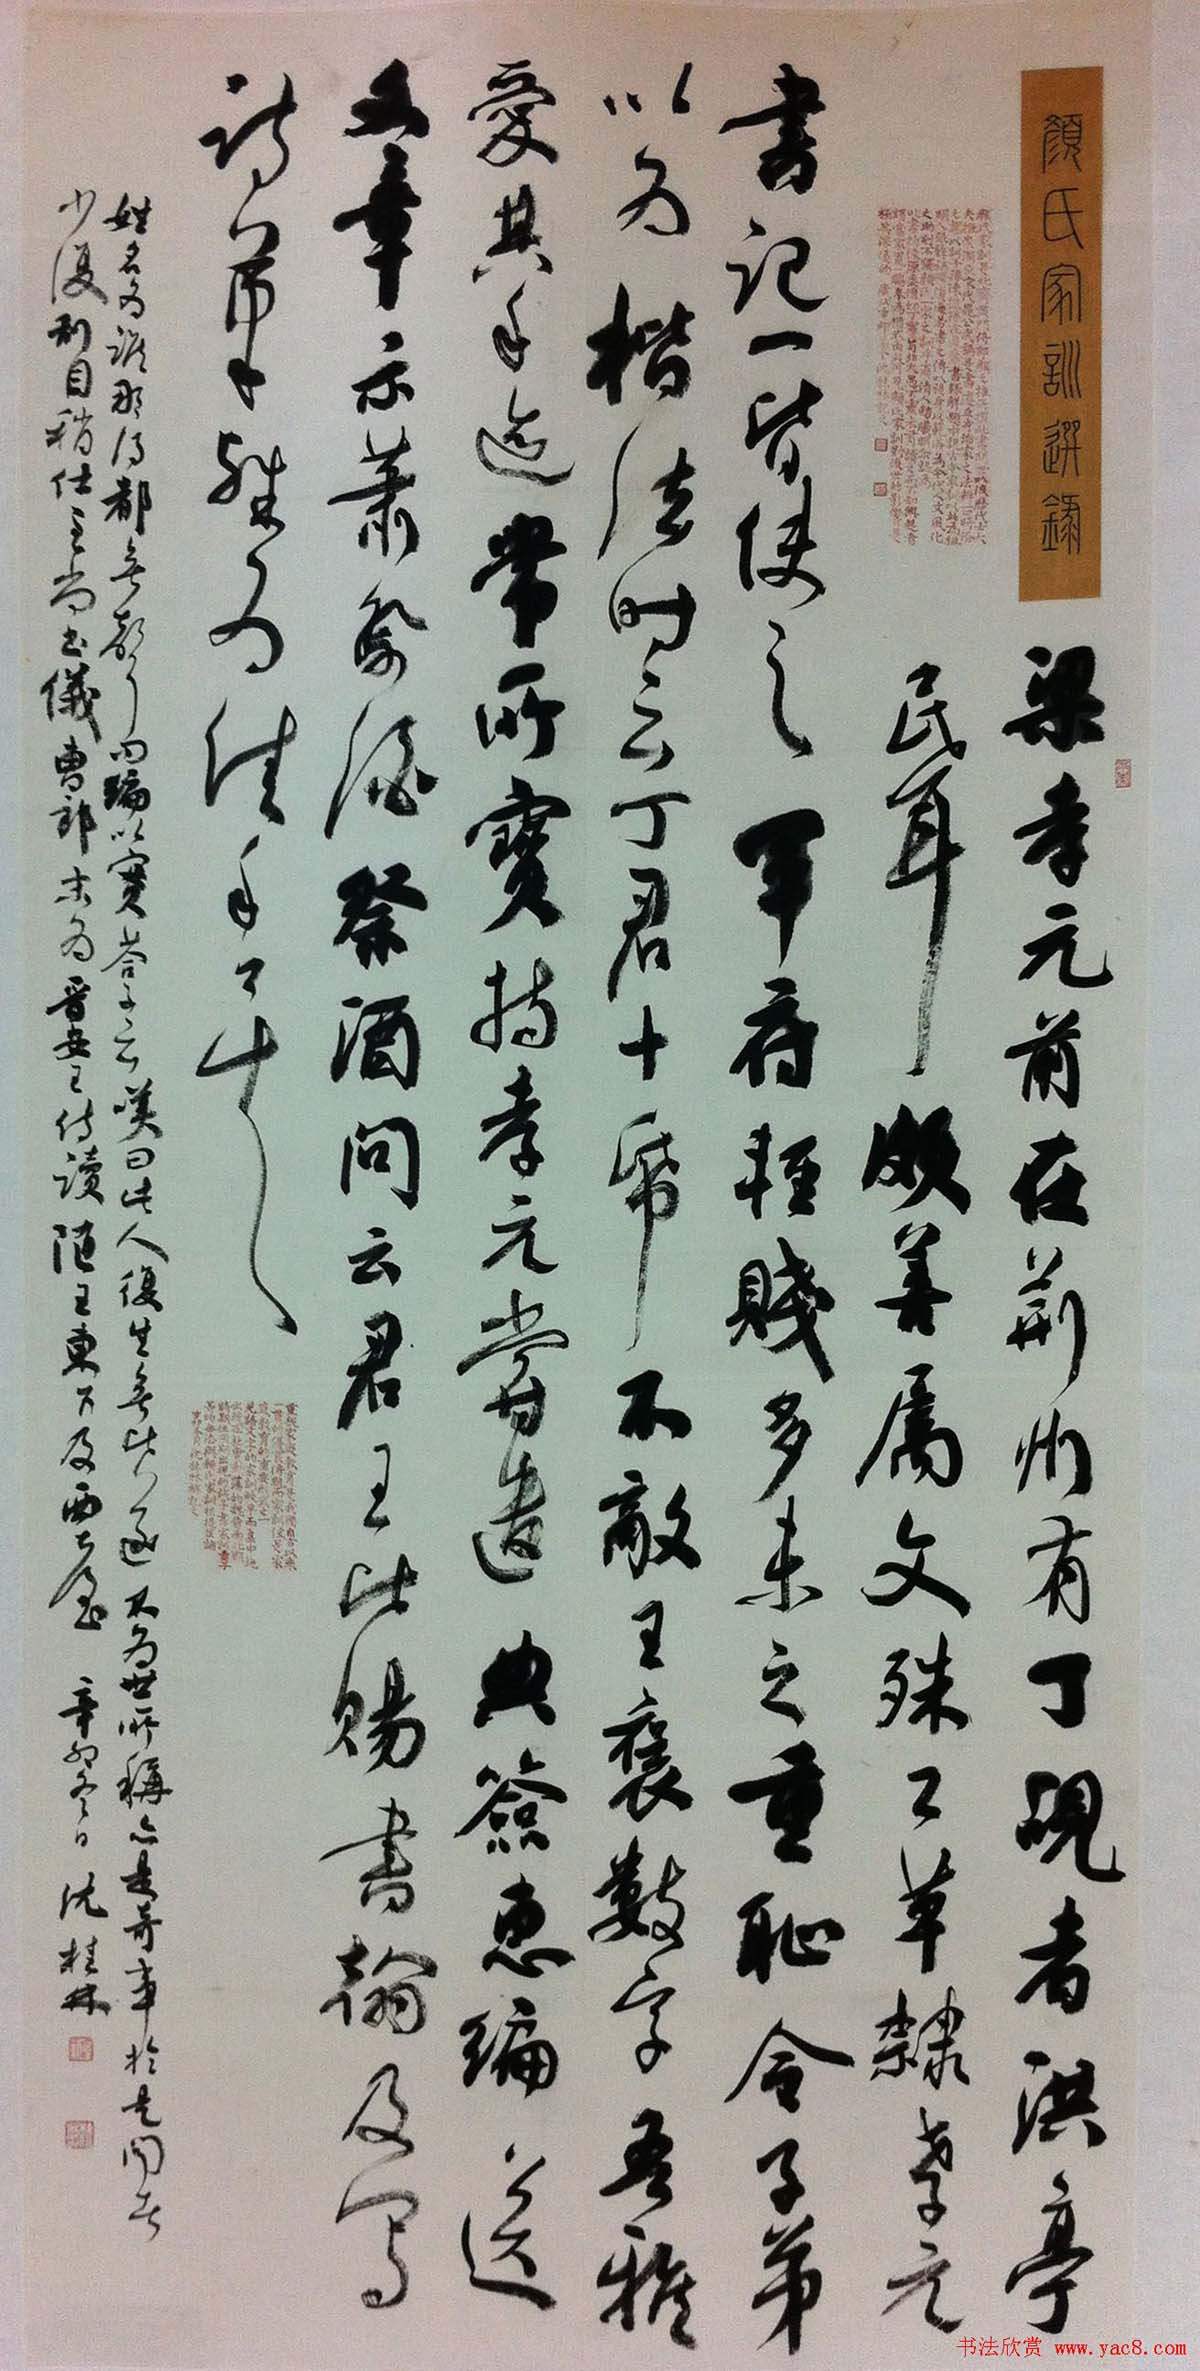 顔氏家訓選録
梁孝元前在荊州有丁覘者洪亭
民耳頗善属文殊工草隸孝元
書記一皆使之軍府輕賤多未之重恥令子弟
以為楷法時云丁君十紙不敵王褒數字吾雅
愛其手迹常所寶持孝元嘗遣典簽惠編送
文章示蕭祭酒祭酒問云君王比賜書翰及寫
詩筆殊為佳手
姓名為誰那得都無聲問編以實答子云嘆曰此人後生無比遂不為世所稱亦是奇事於是聞者
少復刮目稍仕至尚書儀曹郎末為晋安王侍讀隨王東下及西臺
辛卯冬日沈桂林
书法欣赏 www.yac8.com